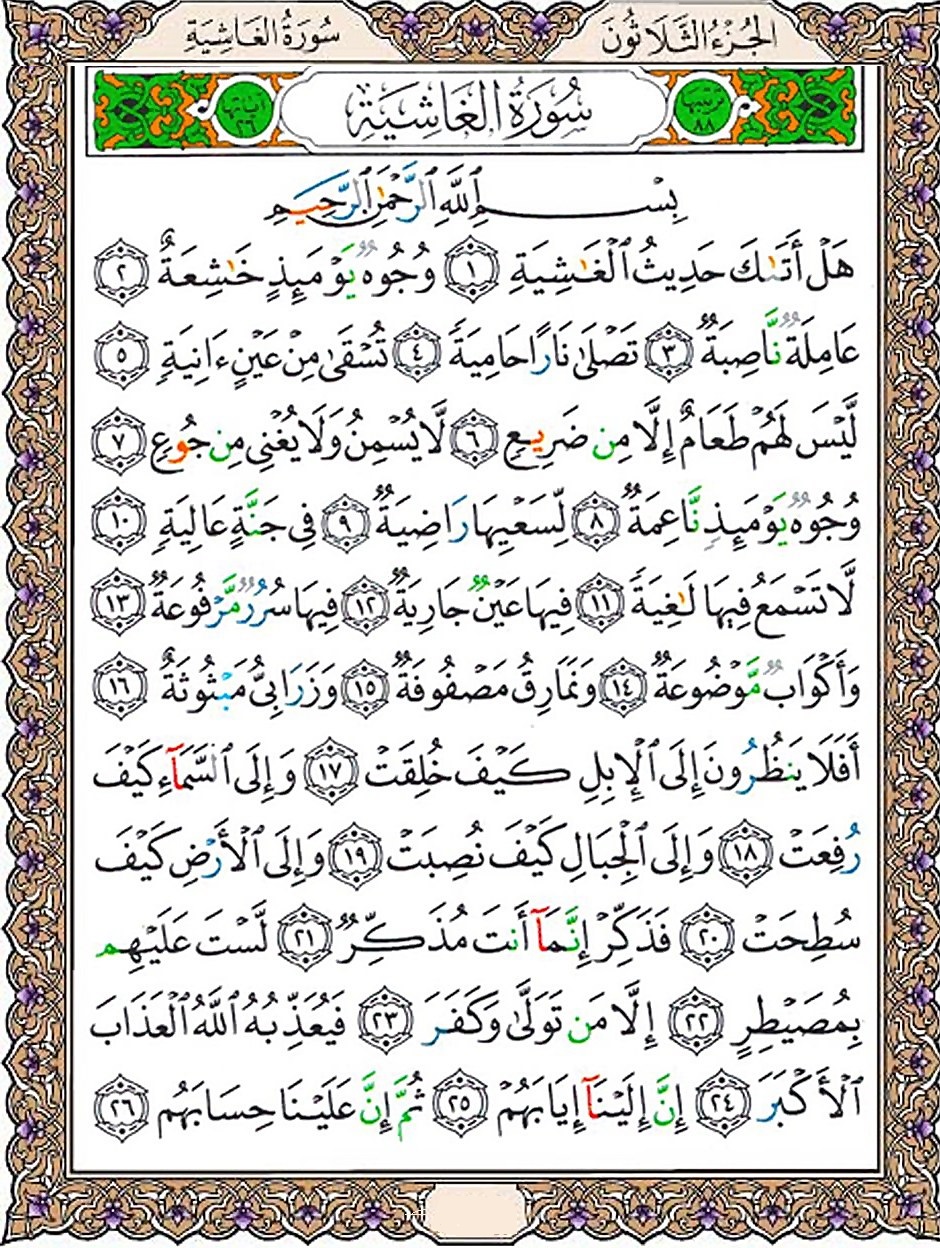 الجُزْءُ الثَّلَاثُونَ
سُورَةُ الغَاشِيَةِ
ترتيبها ٨٨
سُورَةُ الغَاشِيَةِ
آياتها ٢٦
بِسْمِ ٱللَّهِ ٱلرَّحْمَٰنِ ٱلرَّحِيمِ
هَلْ أَتَىٰكَ حَدِيثُ ٱلْغَٰشِيَةِ ١ وُجُوهٌ يَوْمَئِذٍ خَٰشِعَةٌ ٢
عَامِلَةٌ نَّاصِبَةٌ ٣ تَصْلَىٰ نَارًا حَامِيَةً ٤ تُسْقَىٰ مِنْ عَيْنٍ ءَانِيَةٍ ٥
لَّيْسَ لَهُمْ طَعَامٌ إِلَّا مِن ضَرِيعٍ ٦ لَّا يُسْمِنُ وَلَا يُغْنِى مِن جُوعٍ ٧
وُجُوهٌ يَوْمَئِذٍ نَّاعِمَةٌ ٨ لِّسَعْيِهَا رَاضِيَةٌ ٩ فِى جَنَّةٍ عَالِيَةٍ ١٠
لَّا تَسْمَعُ فِيهَا لَٰغِيَةً ١١ فِيهَا عَيْنٌ جَارِيَةٌ ١٢ فِيهَا سُرُرٌ مَّرْفُوعَةٌ ١٣
وَأَكْوَابٌ مَّوْضُوعَةٌ ١٤ وَنَمَارِقُ مَصْفُوفَةٌ ١٥ وَزَرَابِىُّ مَبْثُوثَةٌ ١٦
أَفَلَا يَنظُرُونَ إِلَى ٱلْإِبِلِ كَيْفَ خُلِقَتْ ١٧ وَإِلَى ٱلسَّمَآءِ كَيْفَ
رُفِعَتْ ١٨ وَإِلَى ٱلْجِبَالِ كَيْفَ نُصِبَتْ ١٩ وَإِلَى ٱلْأَرْضِ كَيْفَ
سُطِحَتْ ٢٠ فَذَكِّرْ إِنَّمَآ أَنتَ مُذَكِّرٌ ٢١ لَّسْتَ عَلَيْهِم
بِمُصَيْطِرٍ ٢٢ إِلَّا مَن تَوَلَّىٰ وَكَفَرَ ٢٣ فَيُعَذِّبُهُ ٱللَّهُ ٱلْعَذَابَ
ٱلْأَكْبَرَ ٢٤ إِنَّ إِلَيْنَآ إِيَابَهُمْ ٢٥ ثُمَّ إِنَّ عَلَيْنَا حِسَابَهُم ٢٦